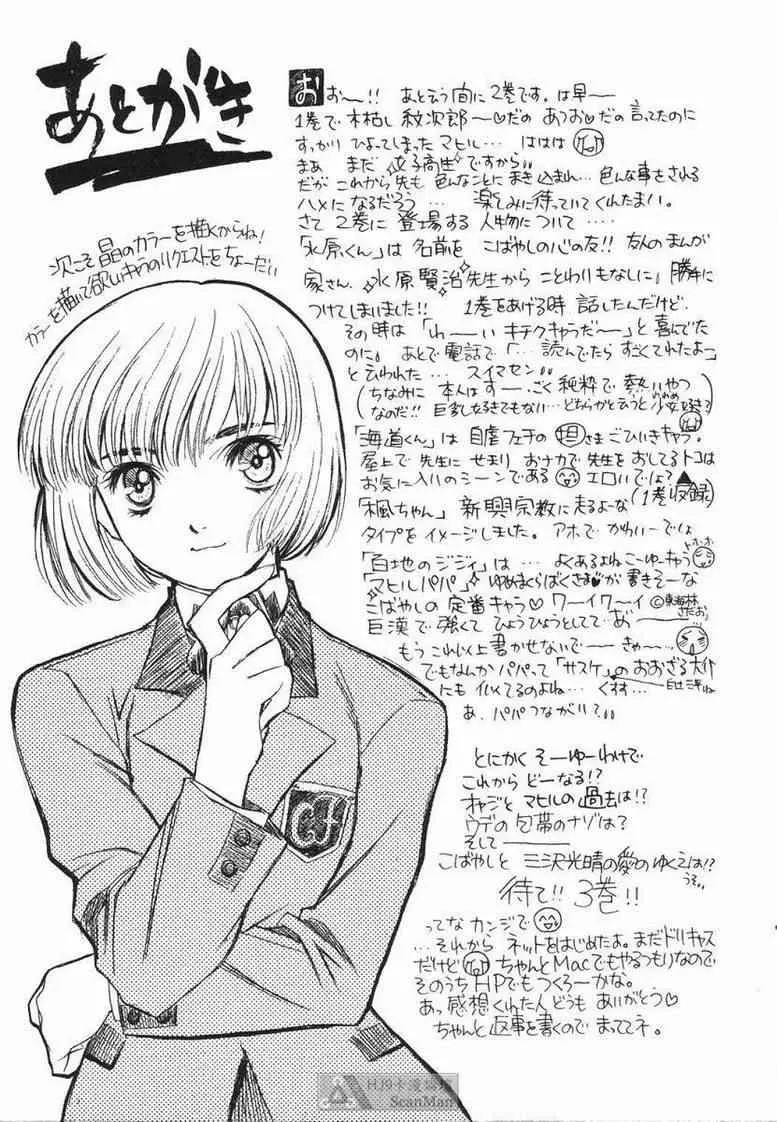 あとがき
次こそ晶のカラーを描くからね!
カラーを描いて欲しいキャラのリクエストをちょーだい
おお〜!! あと云う間に2巻です。は早ー
1巻で木枯し紋次郎〜♡だの あつお♡だの言ってたのに
すっかりひよってしまったマヒル… ははは
まぁ まだ 女子高生 ですから〃
だが これから先も 色んなことにまき込まれ…色んな事をされる
ハメになるだろう… 楽しみに待っていてくれたまい。
さて 2巻に 登場する 人物について‥‥
「水原くん」は 名前を こばやしの心の友!! 友人のまんが
家さん 水原賢治先生から ことわりもなしに」勝手に
つけてしまいました!! 1巻をあげる時 話したんだけど、
その時は「わーい キチクキャラだ〜」と喜んでた
のに。あとで電話で「…読んでたら すごくてれたよっ」
と云われた… スイマセン〃
(ちなみに 本人は すーごく純粋で 熱いやつ
なのだ!! 巨乳好きでもない…どちらかと云うと
「海道くん」は 自虐フェチの 担さまごひいきキャラ。
屋上で先生に せまり おナカで先生をおしてるトコは
お気に入りのシーンである エロいでしょ?
(1巻収録)
「楓ちゃん」新興宗教に走るよーな
タイプをイメージしました。アホで かわいーでしょ
「百地のジジィ」は… よくあるよねこーゆーキャラ
「マヒルパパ」ゆめまくらばくさま♥が 書きそーな
こばやしの 定番キャラ♡ ワーイワーイ ©東海林さだお
巨漢で 強くて ひょうひょうとしてて あ〜
もうこれ以上書かせないで〜 きゃー
でもなんか パパって「サスケ」のおおざる大介
にも 似てるのよね… くすす…
白土三平ね
あ、パパつながり?〃
とにかく そーゆーわけで
これから どーなる!?
オヤジと マヒルの過去は!?
ウデの 包帯のナゾは?
そして———
こばやしと 三沢光晴の愛のゆくえは!?
うそ〃
待て!! 3巻!!
ってな カンジで
…それから ネットをはじめたよ。まだドリキャス
だけど ちゃんとMacでもやるつもりなので
そのうちHPでもつくろーかな。
あっ感想くれた人どうも ありがとう♡
ちゃんと返事を書くので まっててネ。
HJ9卡漫
ScanMan